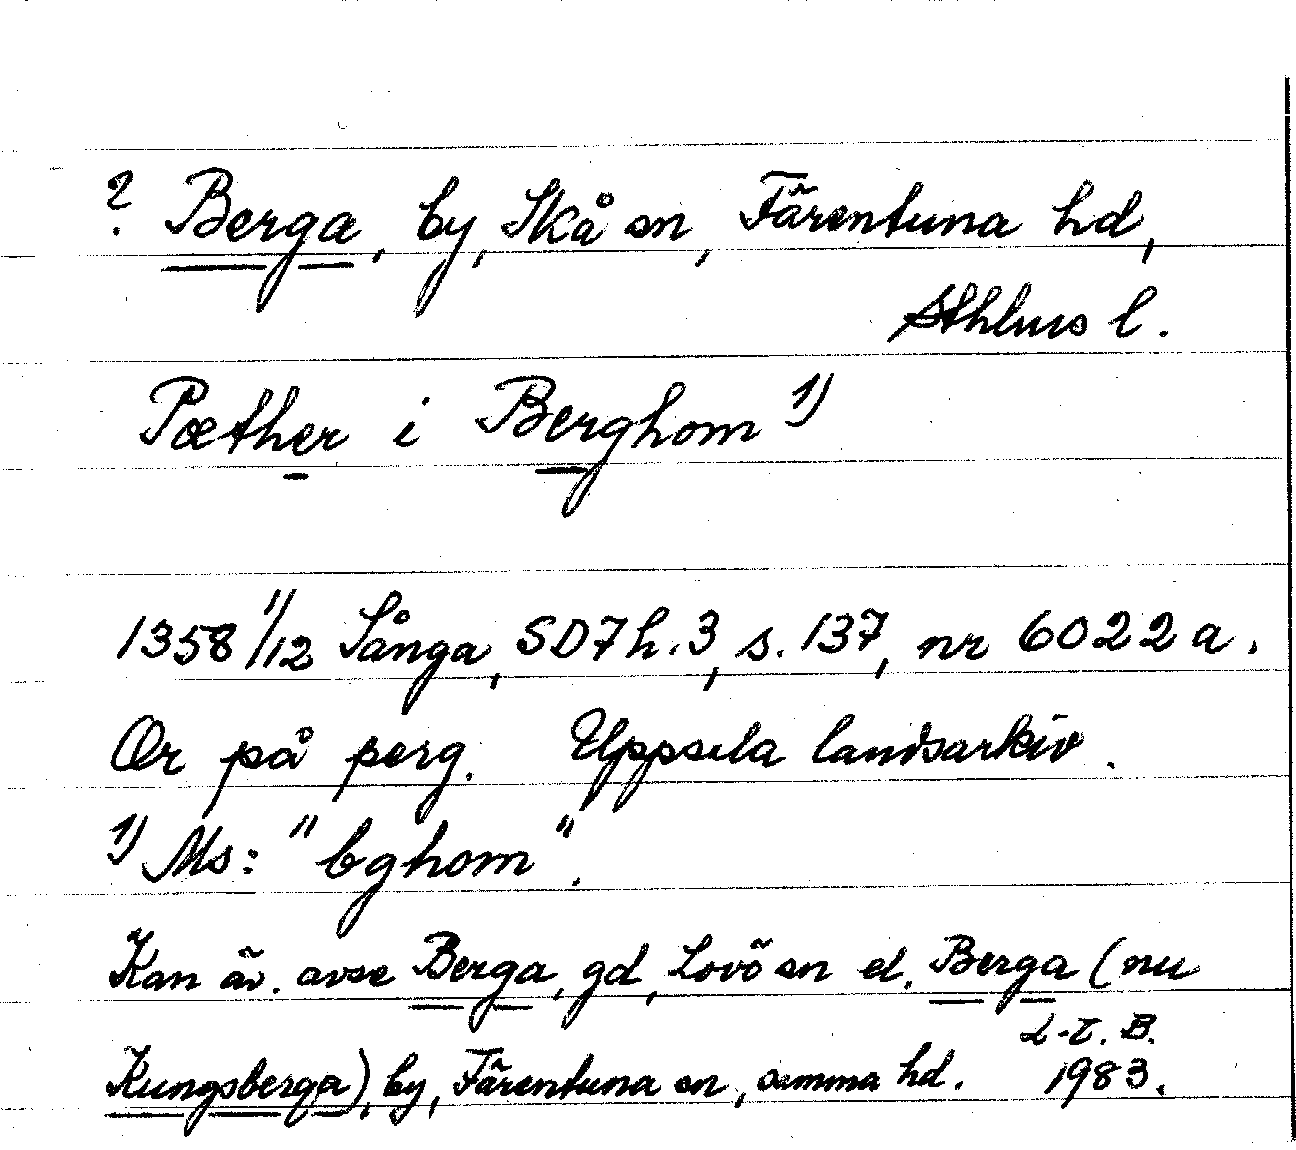 ? Berga, by, Skå sn, Färentuna hd,
Sthlms l.
Pæther i Berghom 1)
1358 1/12 Sånga, SD7 h.3, s. 137, nr 6022 a.
Or på perg. Uppsala landsarkiv.
1) Ms: "bghom".
Kan äv. avse Berga, gd, Lovö sn el. Berga (nu
Kungsberga), by, Färentuna sn, samma hd.
L-E. B.
1983.